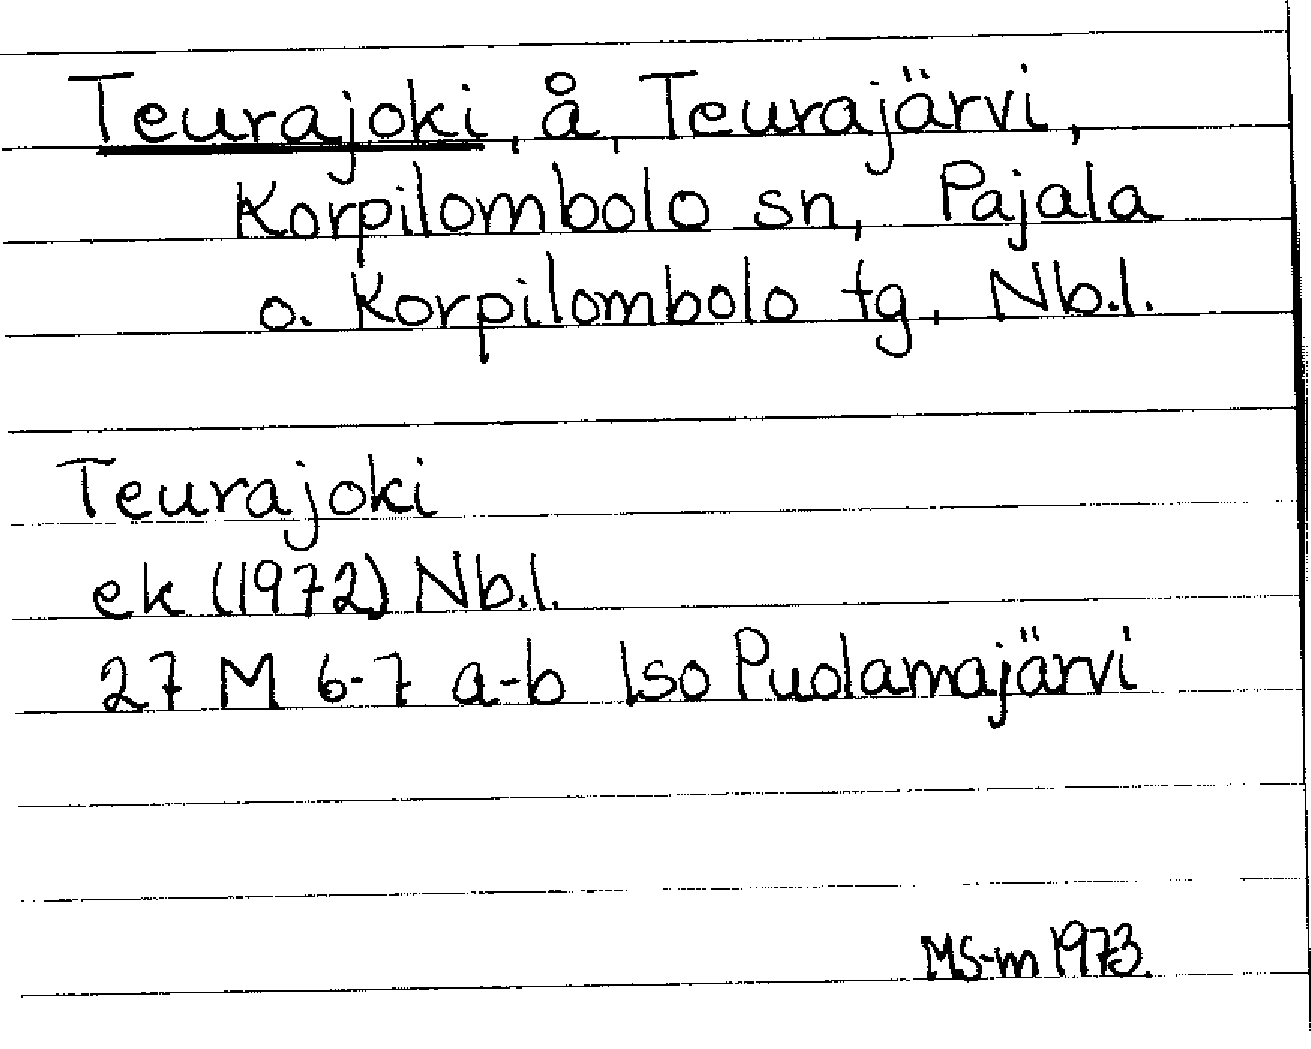 Teurajoki, å, Teurajärvi,
Korpilombolo sn, Pajala
o. Korpilombolo tg, Nb.l.
Teurajoki
ek (1972) Nb.l.
27 M 6-7 a-b Iso Puolamajärvi
MS-m 1973.